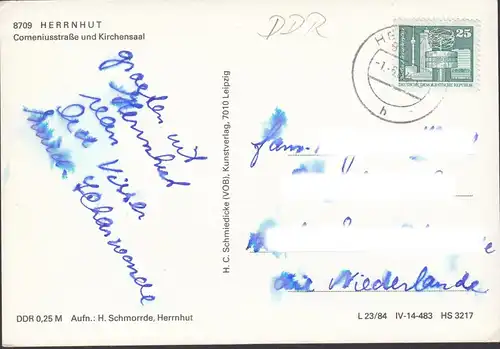 8709 HERRNHUT
Comeniusstraße und Kirchensaal
DDR
25
DEUTSCHE DEMOKRATISCHE REPUBLIK
groeten uit
Herrnhut
van
Visser
Scharwoude
H. C. Schmiedicke (VOB), Kunstverlag, 7010 Leipzig
Fam.
die Niederlande
DDR 0,25 M Aufn.: H. Schmorrde, Herrnhut
L 23/84 IV-14-483 HS 3217